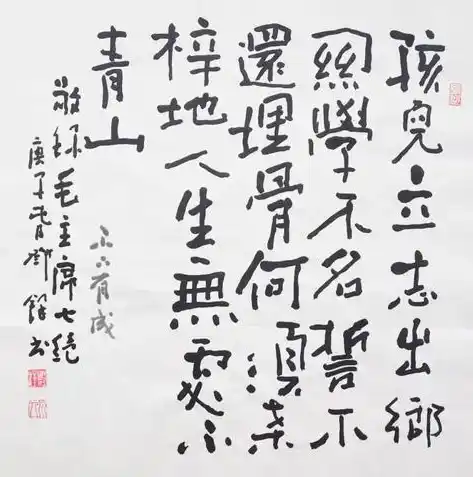 孩兒立志出鄉
關學不名誓不
還埋骨何須桑
梓地人生無處不
青山
不下有成
敬錄毛主席七絕
庚子鄧餘书